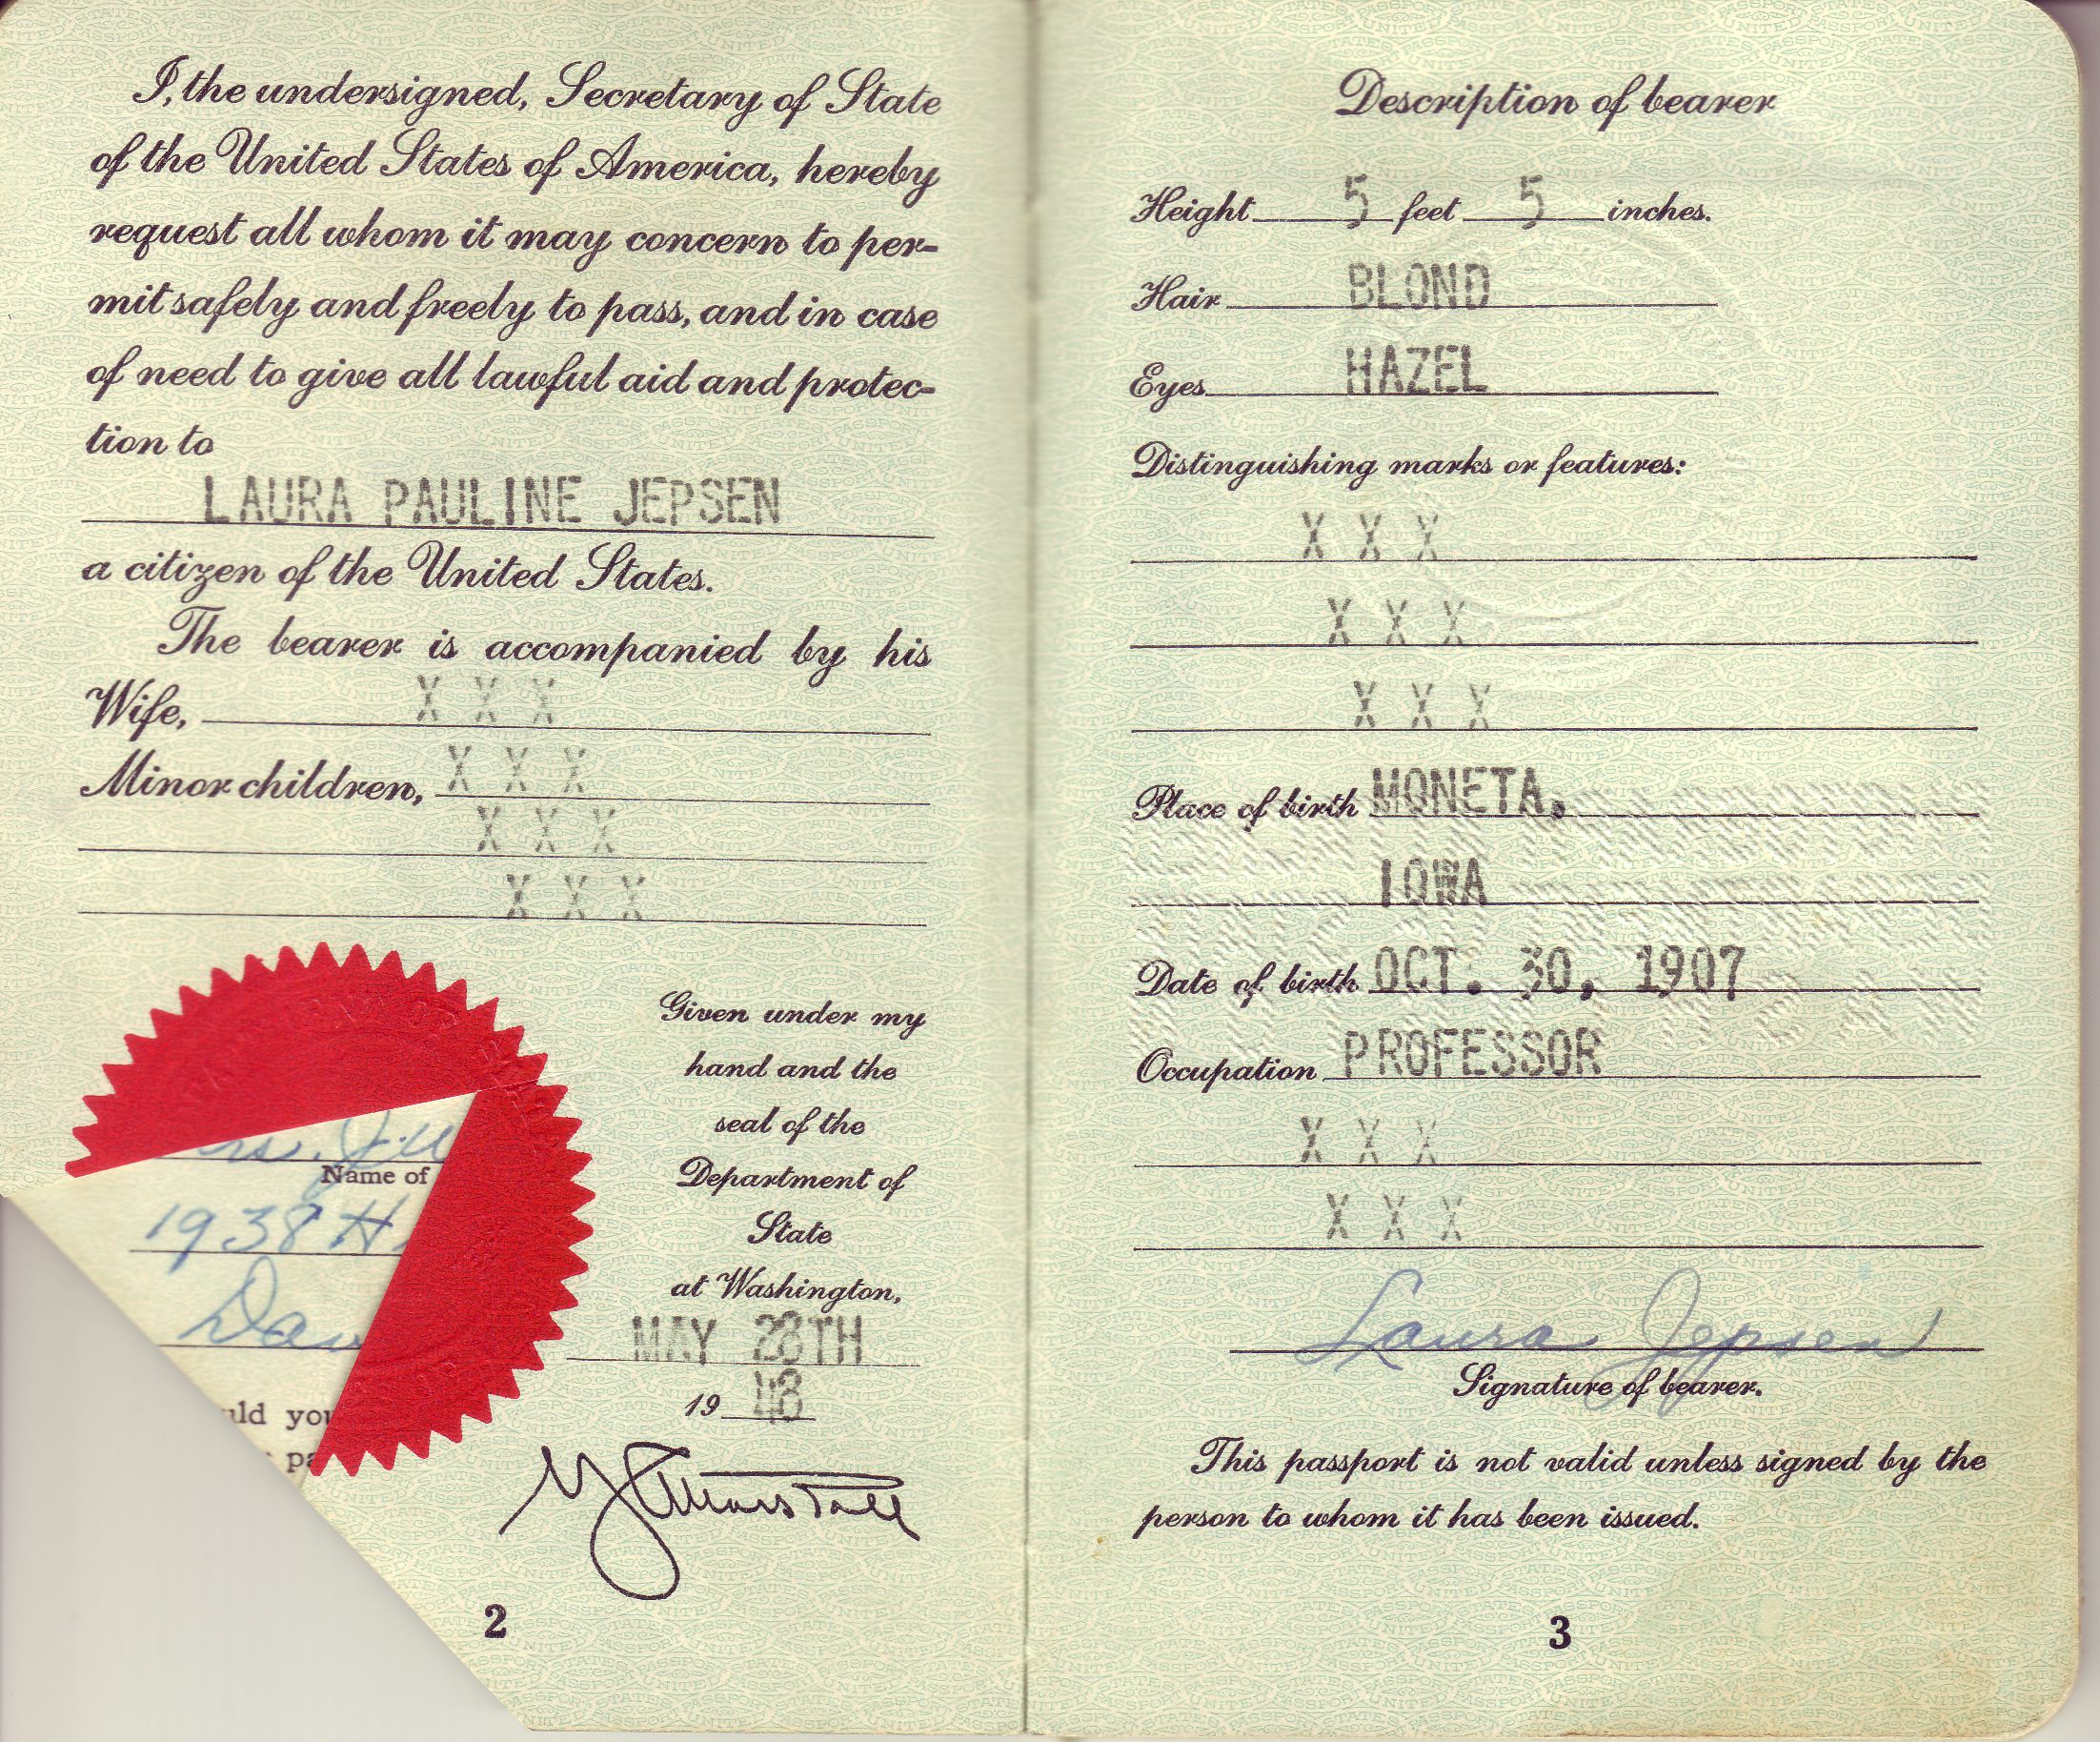 I, the undersigned, Secretary of State
of the United States of America, hereby
request all whom it may concern to per-
mit safely and freely to pass, and in case
of need to give all lawful aid and protec-
tion to
LAURA PAULINE JEPSEN
a citizen of the United States.
The bearer is accompanied by his
Wife, X X X
Minor children, X X X
X X X
X X X
Given under my
hand and the
seal of the
Department of
State
at Washington,
MAY 28TH
19 48
G C Marshall
Name of
1938 H
Dav
uld you
pa
2
Description of bearer
Height 5 feet 5 inches.
Hair BLOND
Eyes HAZEL
Distinguishing marks or features:
X X X
X X X
X X X
Place of birth MONETA,
IOWA
Date of birth OCT. 30, 1907
Occupation PROFESSOR
X X X
X X X
Laura Jepsen
Signature of bearer.
This passport is not valid unless signed by the
person to whom it has been issued.
3